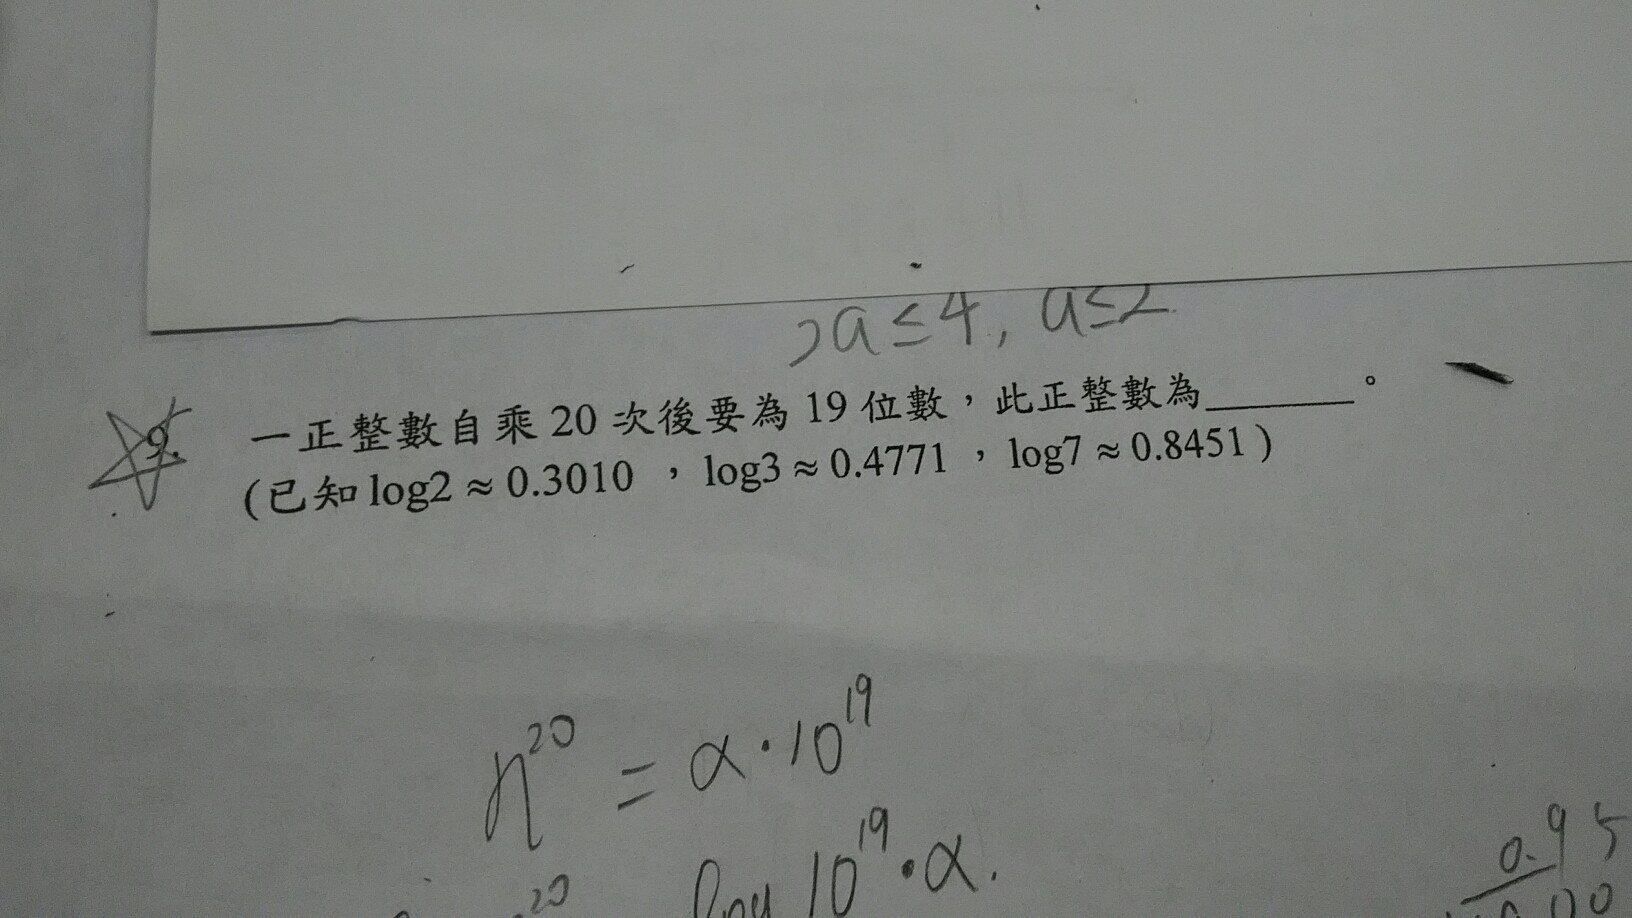 2a ≤ 4, a ≤ 2
9. 一正整數自乘 20 次後要為 19 位數，此正整數為________。
(已知 log2 ≈ 0.3010 ，log3 ≈ 0.4771 ，log7 ≈ 0.8451 )
n²⁰ = α · 10¹⁹
20 log 10¹⁹ · α.
0.95